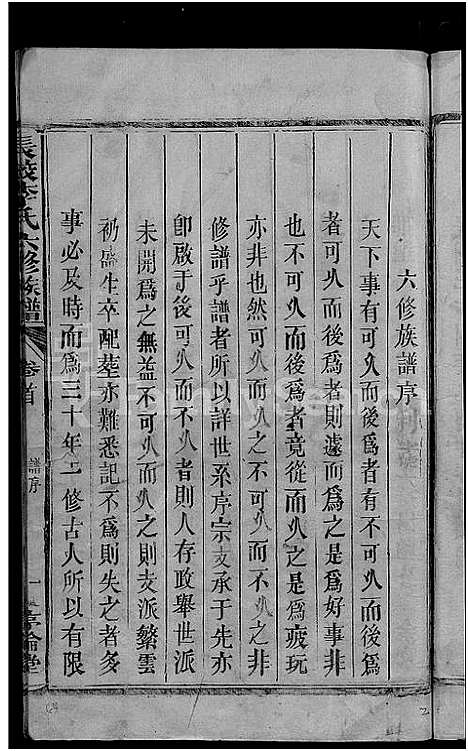 六修族譜序
天下事有可久而後爲者有不可久而後爲
者可久而後爲者則遽而爲之是爲好事非
也不可久而後爲者竟從而久之是爲疲玩
亦非也然可久而久之不可久而不久之非
修譜乎譜者所以詳世系序宗支承于先亦
卽啟于後可久而不久者則人存政舉世派
未開爲之無益不可久而久之則支派繁雲
礽盛生卒配塟亦難悉記不爲則失之者多
事必及時而爲三十年一修古人所以有限
長敬李氏六修族譜
卷首
譜序
一
敦倫堂